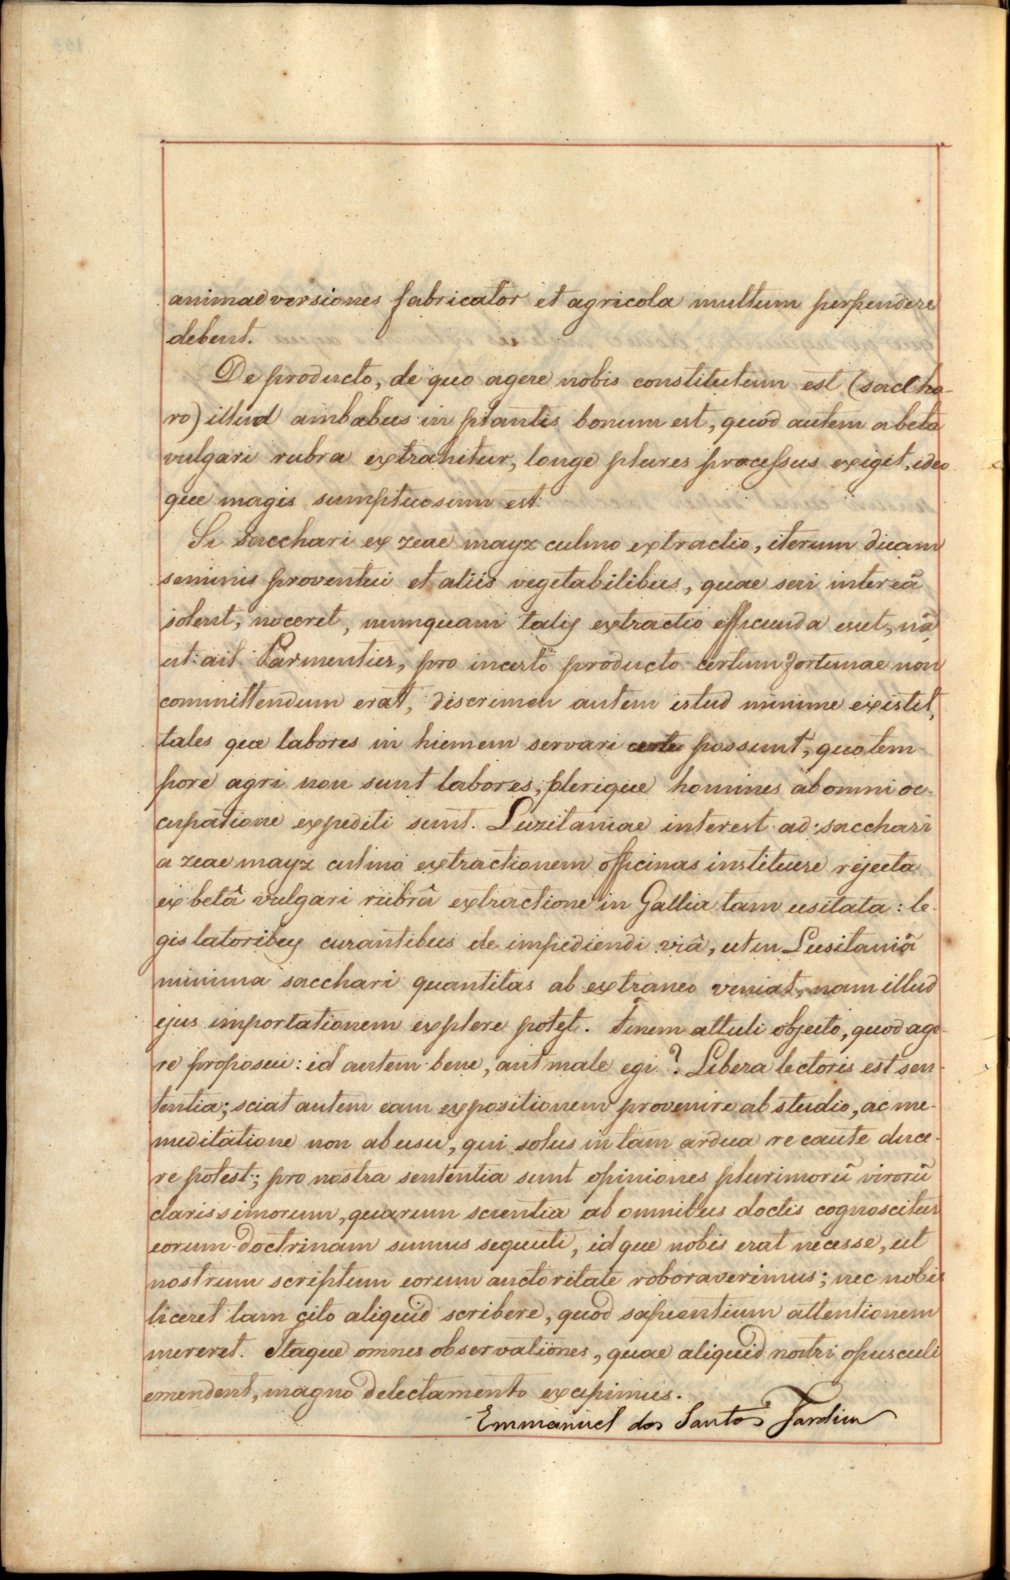 animadversiones fabricator et agricola multum perpendere
debent.
De producto, de quo agere nobis constitutum est (saccha-
ro) illud ambabus in plantis bonum est, quod autem a beta
vulgari rubra extrahitur, longe plures processus exiget, ideo
que magis sumptuosum est.
Si sacchari ex zeae mayz culmo extractio, iterum dicam
seminis proventui et aliis vegetabilibus, quae seri intereâ
solent, noceret, nunquam talis extractio efficienda esset, nã
ut ait Parmentier, pro incerto producto certum fortunae non
committendum erat, discrimen autem istud minime existit,
tales que labores in hiemem servari certe possunt, quo tem
pore agri non sunt labores, plerique homines ab omni oc-
cupatione expediti sunt. Luzitaniae interest ad sacchari
a zeae mayz culmo extractionem officinas instituere rejecta
ex betâ vulgari rubrâ extractione in Gallia tam usitata: le-
gislatoribus curantibus de impediendi viâ, ut in Lusitaniâ
minima sacchari quantitas ab extraneo veniat, nam illud
ejus importationem explere potest. Finem attuli objecto, quod age-
re proposui: id autem bene, aut male egi? Libera lectoris est sen-
tentia; sciat autem eam expositionem provenire ab studio, ac me-
meditatione non ab usu, qui solus in tam ardua re caute duce-
re potest; pro nostra sententia sunt opiniones plurimorũ virorũ
clarissimorum, quarum scientia ab omnibus doctis cognoscitur
eorum doctrinam sumus sequuti, id que nobis erat necesse, ut
nostrum scriptum eorum auctoritate roboraverimus; nec nobis
liceret tam cito aliquid scribere, quod sapientium attentionem
mereret. Itaque omnes observationes, quae aliquid nostri opusculi
emendent, magno delectamento excipimus.
Emmanuel dos Santos Jardim